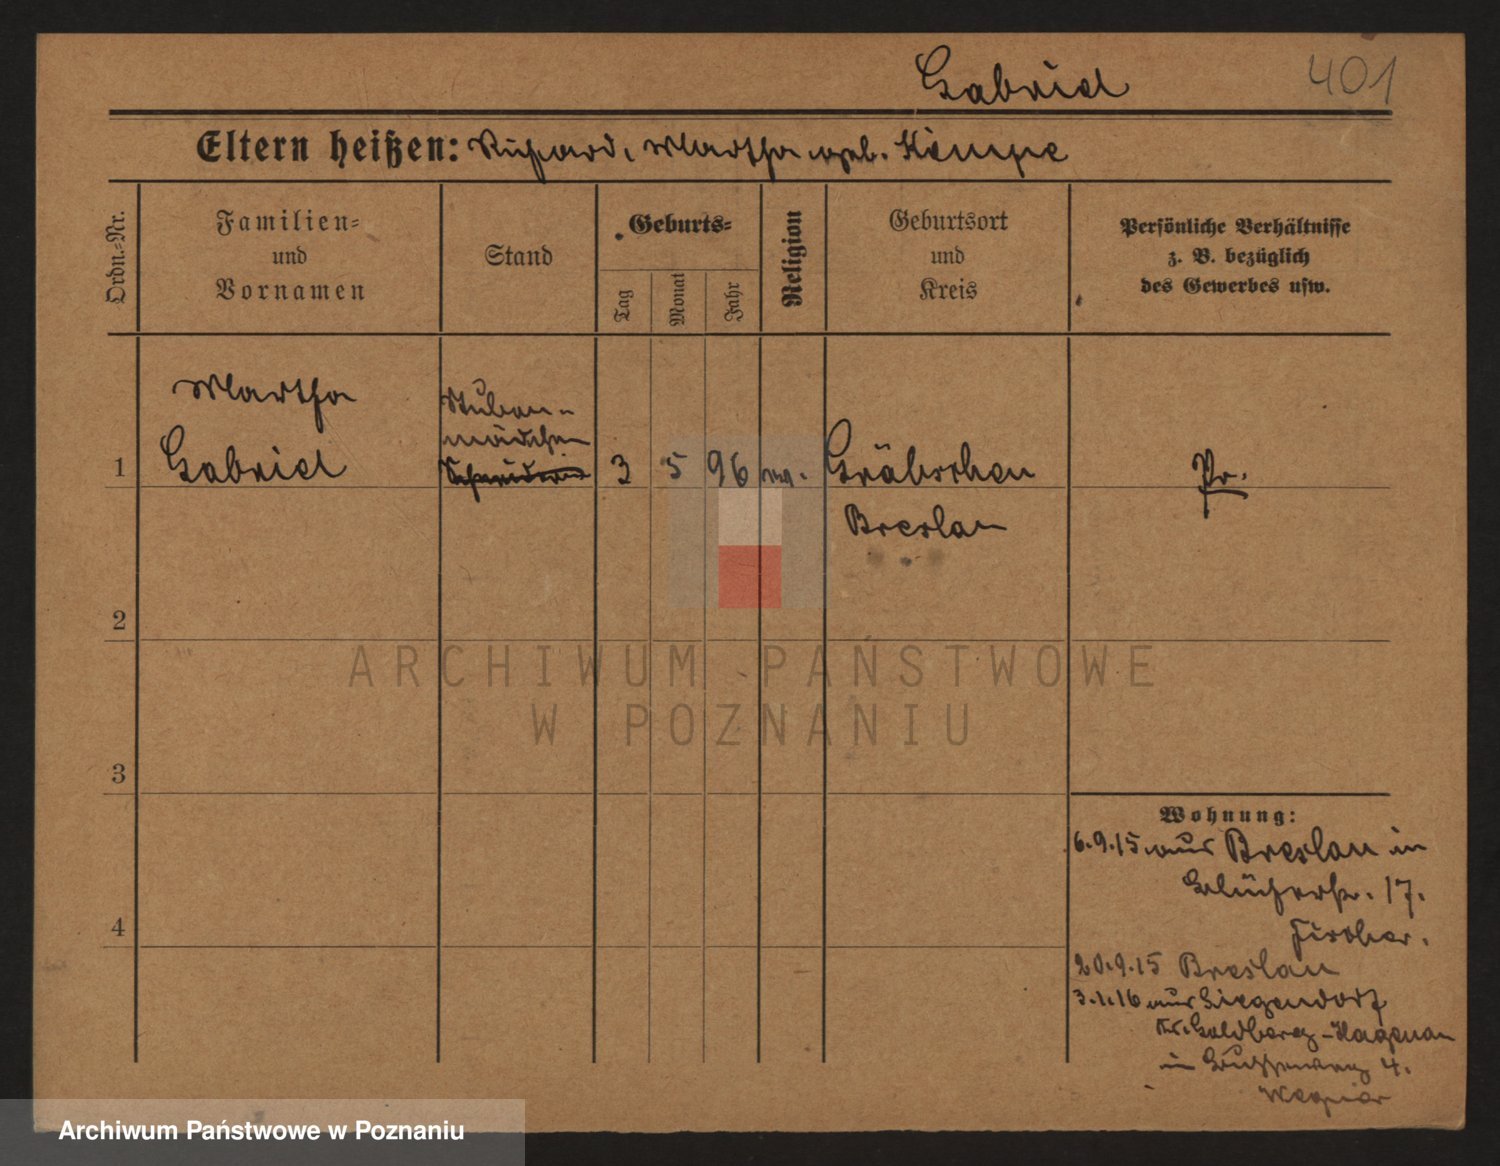 Gabriel
401
Eltern heißen: Richard, Martha geb. Kempe
Ordn.=Nr.
Familien=
und
Vornamen
Stand
Geburts=
Tag
Monat
Jahr
Religion
Geburtsort
und
Kreis
Persönliche Verhältnisse
z. B. bezüglich
des Gewerbes usw.
Martha
Gabriel
Stuben-
mädchen
1
3
5
96
ev.
Gräbschen
Breslau
Pr.
2
3
4
Wohnung:
6.9.15 aus Breslau in
Blücherstr. 17.
Fischer.
20.9.15 Breslau
3.1.16 aus
Kr. Goldberg-Hagenau
in 4.
Wegner
ARCHIWUM PAŃSTWOWE
W POZNANIU
Archiwum Państwowe w Poznaniu